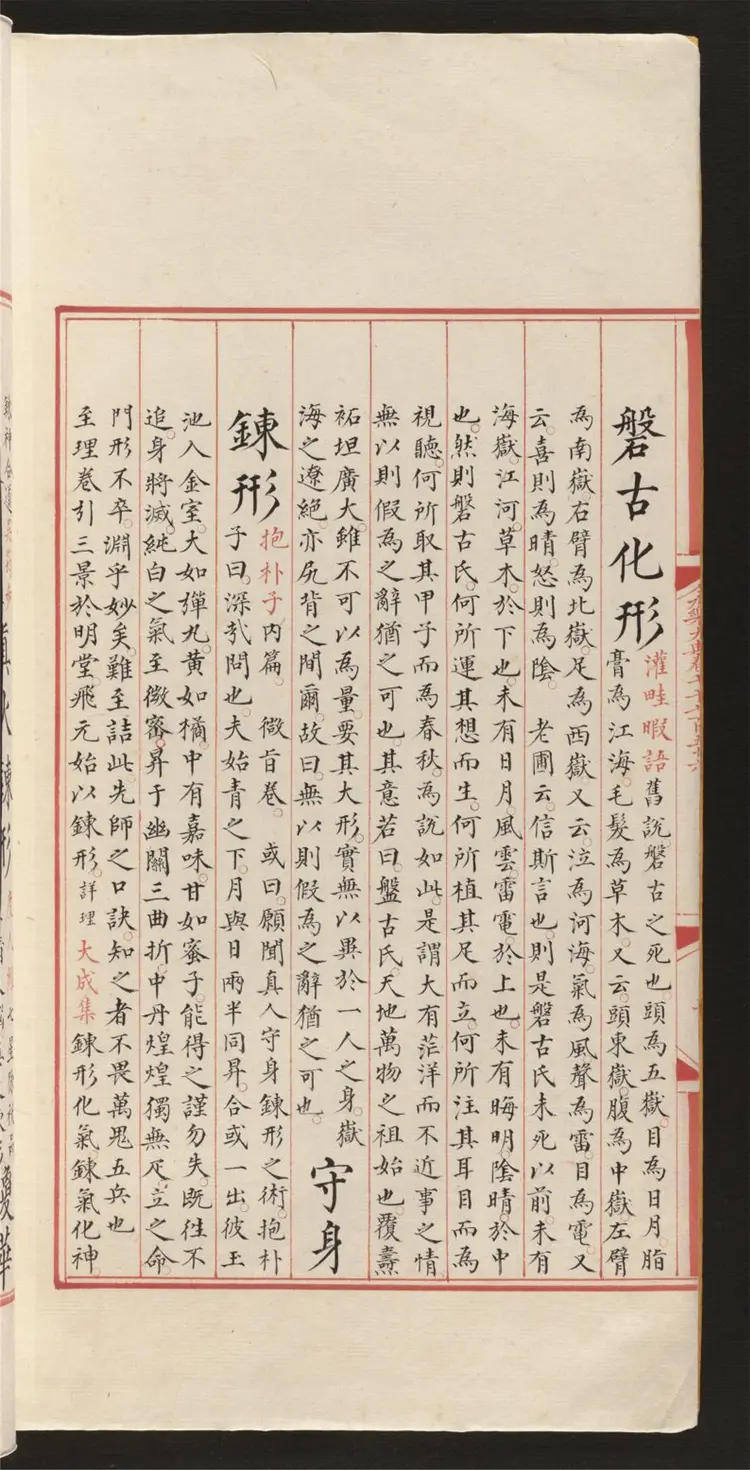 磐古化形
灌畦暇語舊說磐古之死也。頭為五嶽。目為日月。脂
膏為江海。毛髮為草木。又云。頭東嶽。腹為中嶽。左臂
為南嶽。右臂為北嶽。足為西嶽。又云。泣為河海。氣為風。聲為雷。目為電。又
云。喜則為晴。怒則為陰。 老圃云。信斯言也。則是磐古氏未死以前。未有
海嶽。江河。草木。於下也。未有日月。風雲。雷電。於上也。未有晦明。陰晴。於中
也。然則磐古氏。何所運其想而生。何所植其足而立。何所注其耳目而為
視聽。何所取其甲子而為春秋。為說如此。是謂大有茫洋而不近事之情。
無以則假為之辭猶之可也。其意若曰。盤古氏。天地萬物之祖始也。覆燾
袥坦廣大。雖不可以為量。要其大形。實無以異於一人之身。嶽
海之遼絕。亦尻背之間爾。故曰。無以則假為之辭猶之可也。
守身
鍊形
抱朴子內篇。 微旨卷。 或曰。願聞真人守身鍊形之術。抱朴
子曰。深哉問也。夫始青之下。月與日兩半同昇。合或一出。彼玉
池入金室。大如彈丸。黃如橘。中有嘉味。甘如蜜子。能得之謹勿失。既往不
追。身將滅。純白之氣至微密。昇于幽關三曲折。中丹煌煌獨無疋。立之命
門形不卒。淵乎妙矣。難至詰此。先師之口訣。知之者不畏萬鬼五兵也
至理卷引三景於明堂。飛元始以鍊形。詳理大成集鍊形化氣鍊氣化神